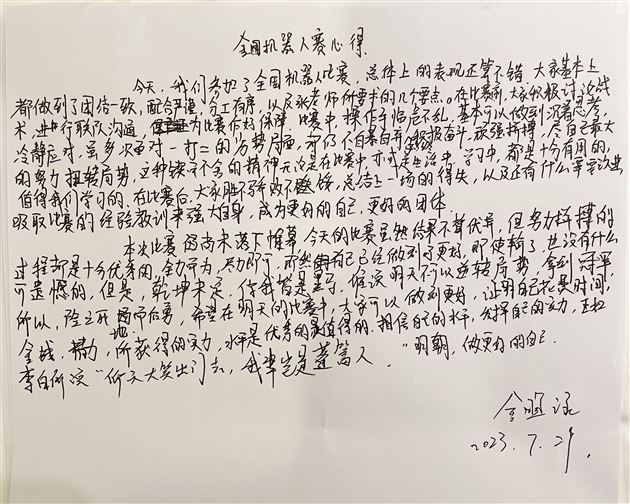 全国机器人赛心得
今天，我们参加了全国机器人比赛，总体上的表现还算不错，大家基本上
都做到了团结一致，配合严谨，分工有序，以及张老师所要求的几个要点。在比赛前，大家积极讨论战
术，进行联队沟通，为比赛作好保障，比赛中，操作手临危不乱，基本可以做到沉着思考，
冷静应对，虽多次面对一打二的劣势局面，可仍不自暴自弃，积极奋斗，顽强拼搏，尽自己最大
的努力扭转局势，这种锲而不舍的精神无论是在比赛中，亦或是生活中，学习中，都是十分有用的，
值得我们学习的，在比赛后，大家胜不骄败不馁，总结上一场的得失，以及还有什么需要改进
吸取比赛的经验教训来强大自身，成为更好的自己，更好的团体
本次比赛仍尚未落下帷幕，今天的比赛虽然结果不算优异，但努力拼搏的
过程却是十分优秀的，全力以赴，尽力即可，既然自己已经做到了更好，即使输了，也没有什么
可遗憾的，但是，乾坤未定，你我皆是黑马，候演明天不可以逆转局势，拿到冠军，
所以，险之死地而后勇，希望在明天的比赛中，大家可以做到更好，证明自己花费时间，
金钱，精力，所获得的实力，水平是优秀的是值得的，相信自己的水平，发挥自己的实力，正如
李白所演“仰天大笑出门去，我辈岂是蓬蒿人，”明朝，做更好的自己.
2023.7.29.